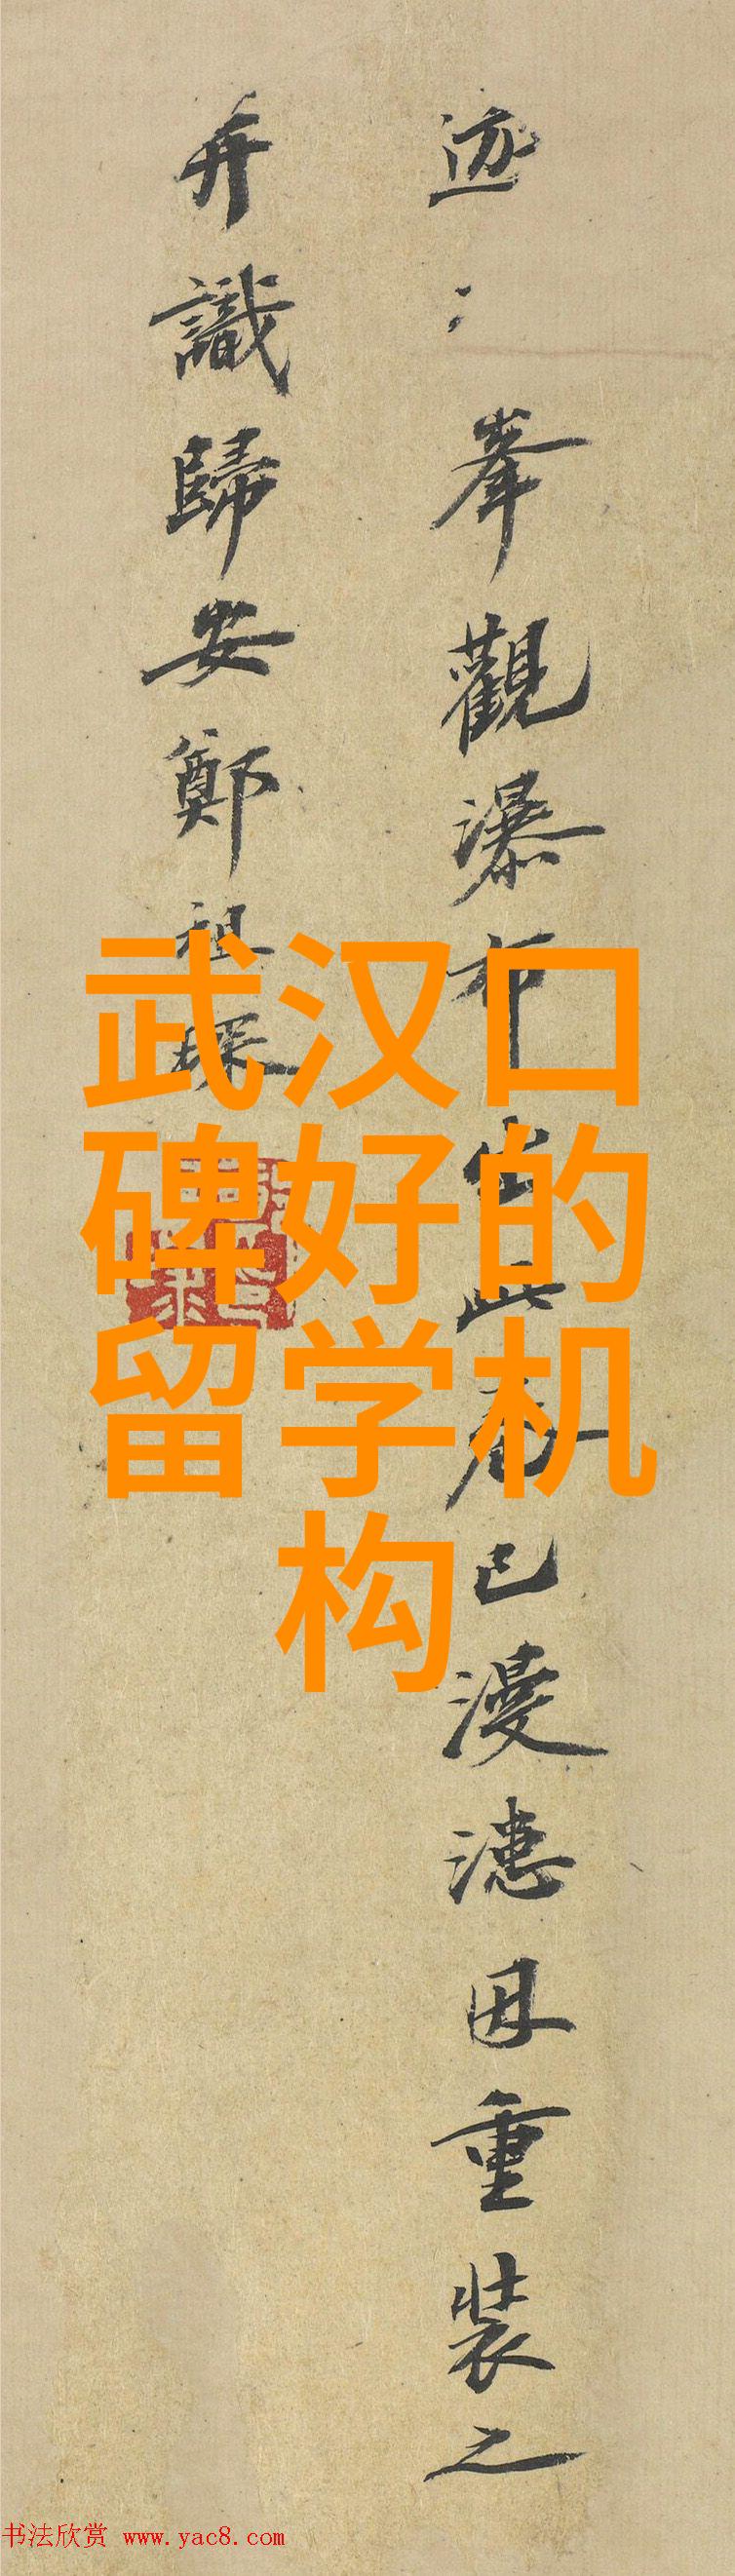 迹〻峯觀瀑布出此卷已漫漶因重装之
弁識歸安鄭祖琛
武汉口
碑好的
留学机
构
书法欣赏 www.yac8.com